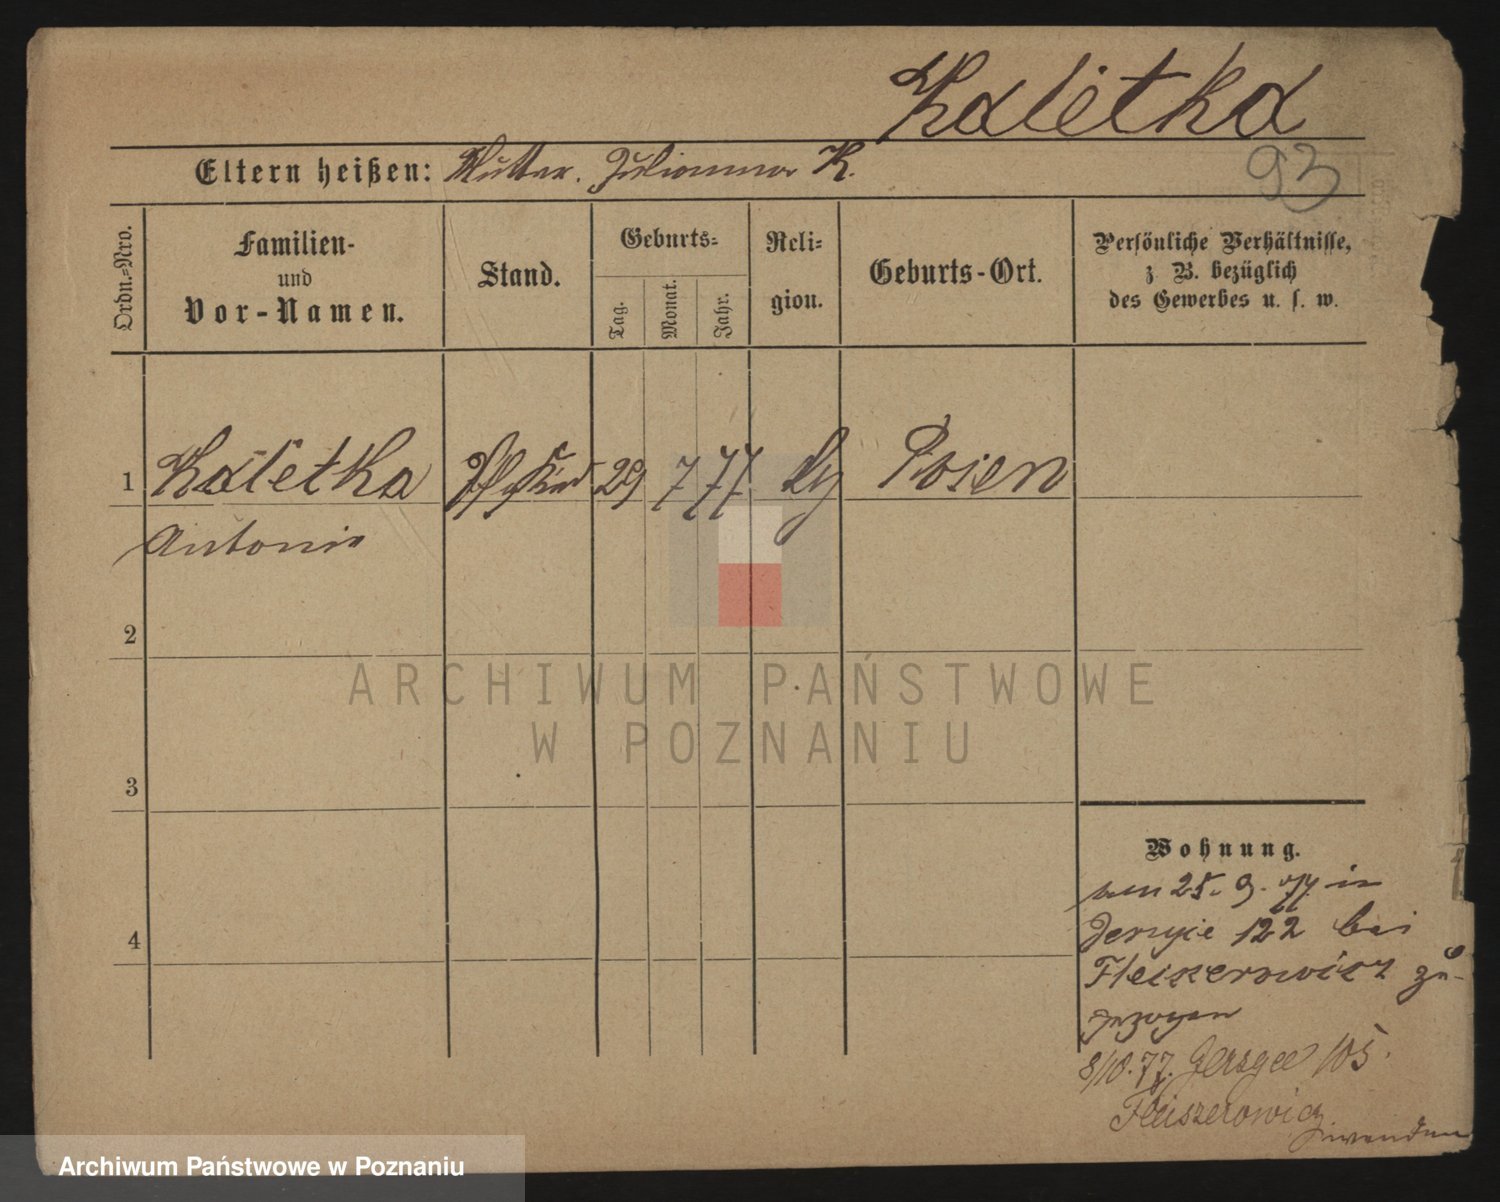 Kaletka
93
Eltern heißen: Mutter. Julianna K.
Ordn.-Nro.
Familien-
und
Vor-Namen.
Stand.
Geburts-
Tag.
Monat.
Jahr.
Reli-
gion.
Geburts-Ort.
Persönliche Verhältnisse,
z B. bezüglich
des Gewerbes u. s. w.
1 Kaletka Pflgkind 29 7 77 Posen
Antonie
2
3
4
Wohnung.
am 25. 9. 77. in
Jerzyce 122 bei
Fleiszerowicz zu-
gezogen
8/10. 77. 105.
Fleiszerowicz
ARCHIWUM PAŃSTWOWE
W POZNANIU
Archiwum Państwowe w Poznaniu